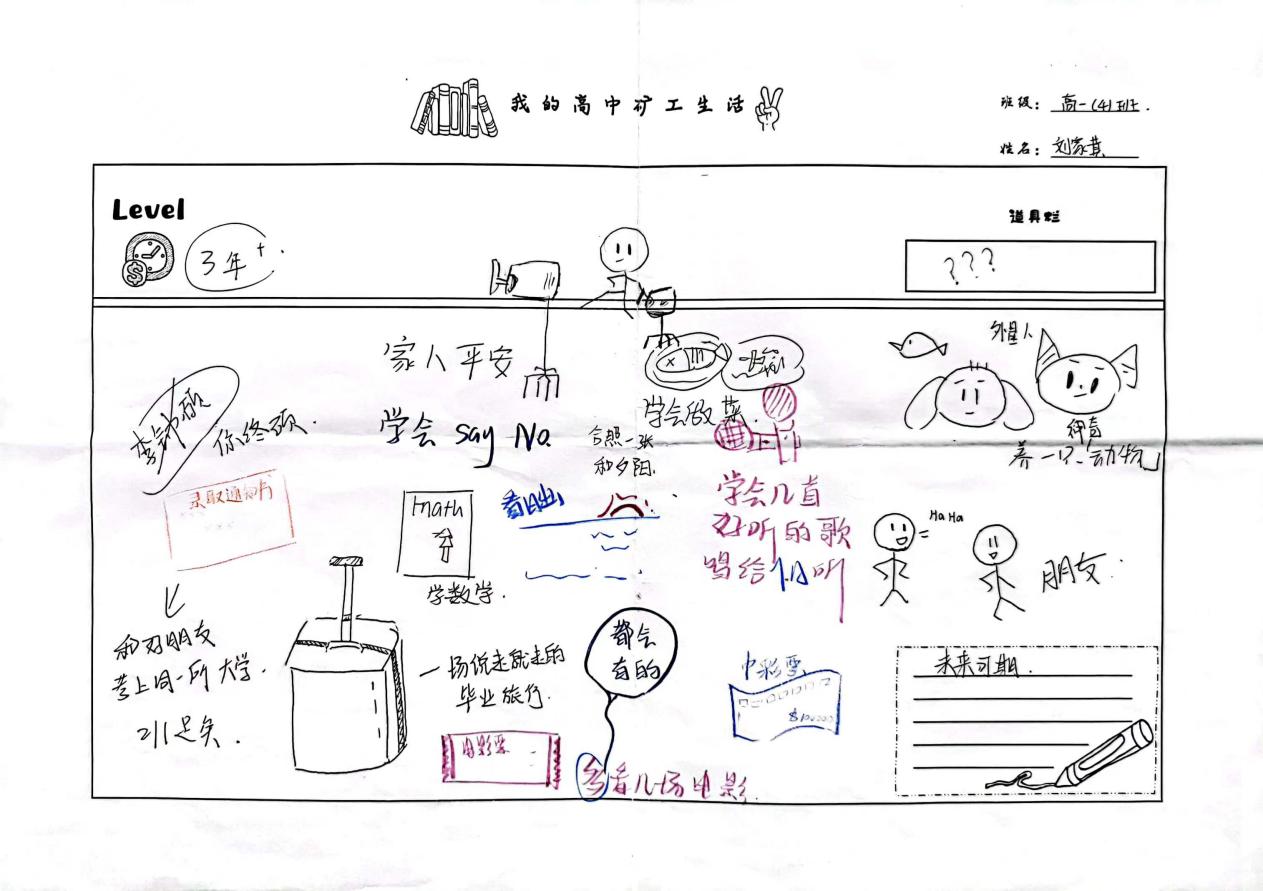 我的高中矿工生活
班级：高一(4)班.
姓名：刘家萁
Level
3年+.
道具栏
???
家人平安
学会 say No.
你终须.
录取通知书
和刃朋友
考上同一所大学.
211足矣.
math
学数学.
看日出
合照一张
和夕阳.
学会做菜.
学会几首
好听的歌
唱给 听
外星人
神奇
养一只动物
Ha Ha
朋友.
一场说走就走的
毕业旅行.
都会
有的
中彩票
$100000
电影票
多看几场电影.
未来可期.